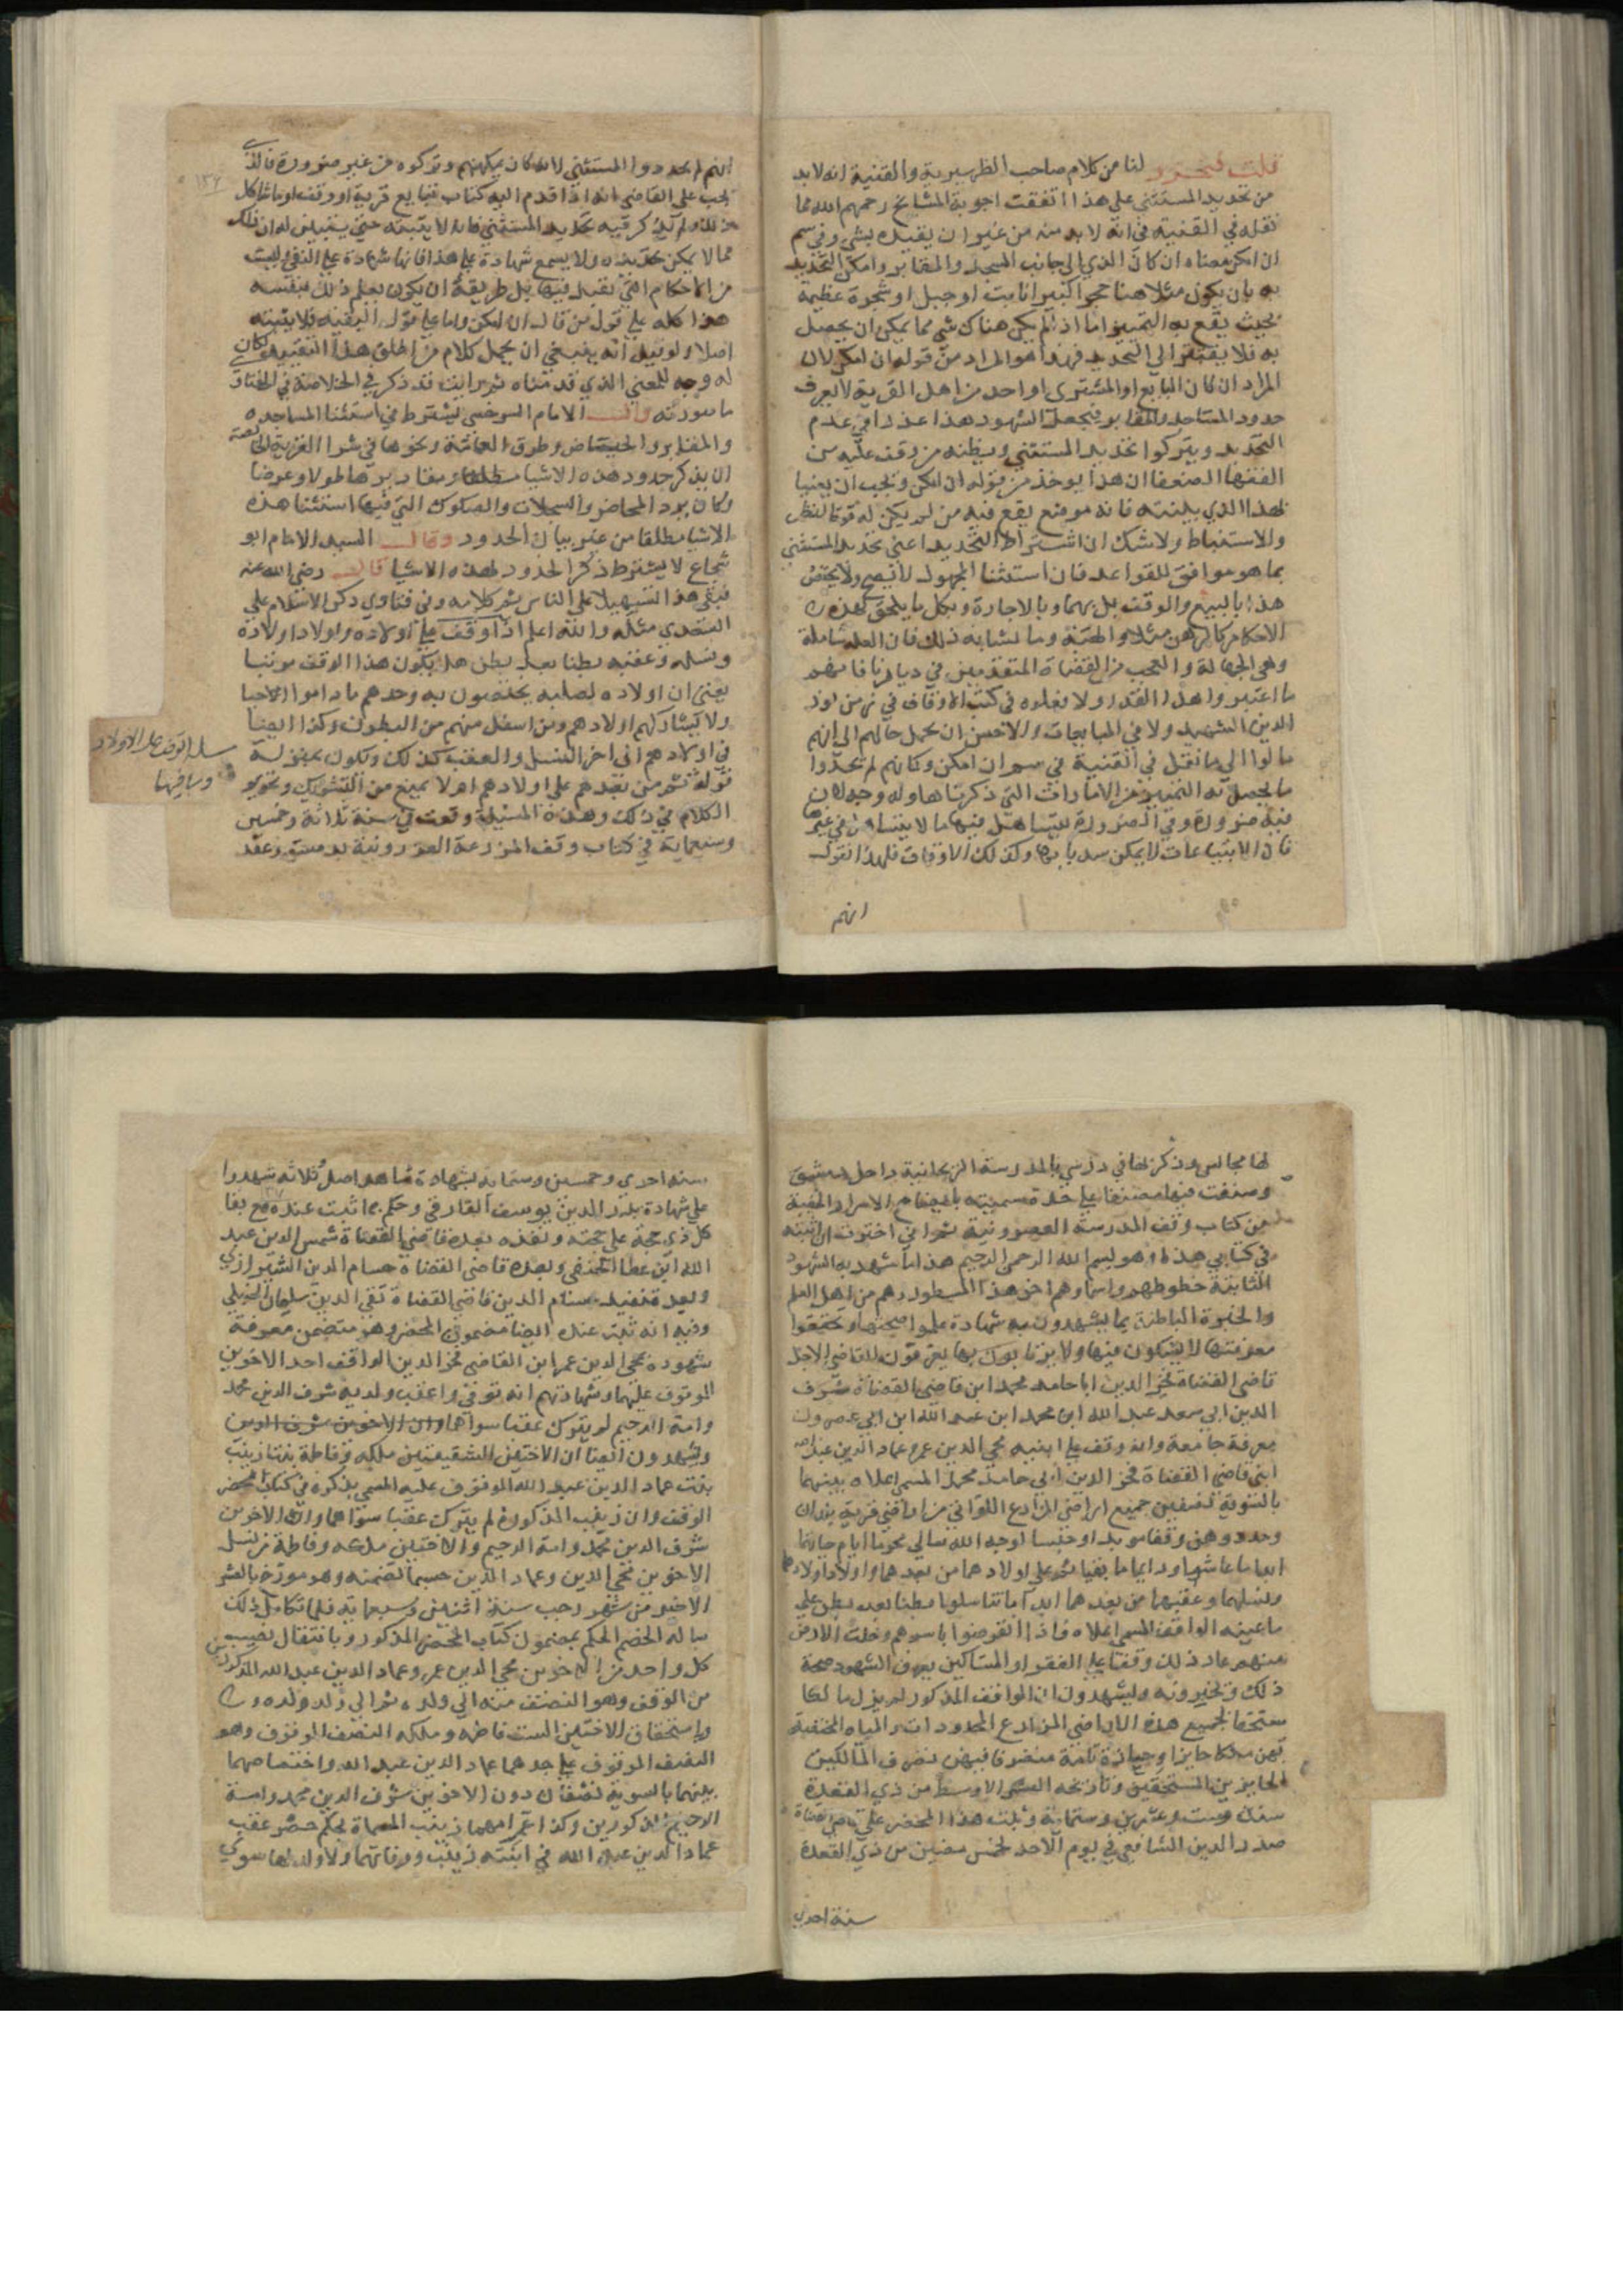 قلت فتحرر لنا من كلام صاحب الظهيرية والقنية انه لا بد
من تحديد المستثنى على هذا اتفقت اجوبة المشايخ رحمهم الله مما
نقله في القنية في انه لا بد منه من غير ان يقيده بشي وفي سم
ان امكن معناه ان كان الذي الى جانب المسجد والمقابر وامكن التحديد
به بان يكون مثلا هنا حجرا كبيرا ثابت او جبل او شجرة عظيمة
بحيث يقع به التمييز اما اذا لم يكن هناك شي مما يمكن ان يحصل
به فلا يفتقر الى التحديد فهذا هو المراد من قوله ان امكن لان
المراد ان كان البايع او المشترى او احد من اهل القرية لا يعرف
حدود المساجد والمقابر فيجعل الشهود هذا عذرا في عدم
التحديد ويتركوا تحديد المستثنى ويظنه من وقف عليه من
الفقها الضعفا ان هذا يوخذ من قوله ان امكن ويجب ان يعنيا
لهذا الذي بينته فانه موضع يقع فيه من لم يكن له قوة النظر
والاستنباط ولا شك ان اشتراط التحديد اعني تحديد المستثنى
بما هو موافق للقواعد فان استثنا المجهول لا يصح ولا يختص
هذا بالبيع والوقف بل بهما وبالاجارة وبكل ما يلحق هذه
الاحكام كالرهن مثلا والهبة وما شابه ذلك فان العلة شاملة
وهي الجهالة والتعجب من القضاة المتقدمين في ديارنا فانهم
ما اعتبروا هذا القدر ولا فعلوه في كتب الاوقاف في زمن نور
الدين الشهيد ولا في المبايعات والاحسن ان يحمل حالهم الى انهم
مالوا الى ما نقل في القنية في سم ان امكن وكانهم لم يجدوا
ما يحصل به التمييز من الامارات التي ذكرتها وله وجه لان
فيه ضرورة وفي الضرورة يتساهل فيها ما لا يتساهل في غيرها
فان الابتياعات لا يمكن سد بابها وكذلك الاوقاف فلهذا نقول
انهم
انهم لم يحددوا المستثنى لانه كان يمكنهم وتركوه من غير ضرورة فالذي
يجب على القاضي انه اذا قدم اليه كتاب تبايع قرية او وقف او ما شاكل
ذلك ولم يذكر فيه تحديد المستثنى فانه لا يثبته حتى يتبين له ان ذلك
مما لا يمكن تحديده ولا يسمع شهادة على هذا فانها شهادة على النفي وليست
من الاحكام التي تقبل فيها بل طريقه ان يكون يعلم ذلك بنفسه
هذا كله على قول من قال ان امكن واما على قول البقية فلا يثبته
اصلا ولو قيل انه ينبغي ان يحمل كلام من اطلق هذا التقييد لكان
له وجه للمعنى الذي قدمناه ثم رايت قد ذكر في الخلاصة في الفتاوى
ما صورته وقال الامام السرخسي يشترط في استثنا المساجد
والمقابر والحياض وطرق العامة ونحوها في شرا القرية الخالصة
ان يذكر حدود هذه الاشيا مطلقا ومقاديرها طولا وعرضا
وكان يرد المحاضر والسجلات والصكوك التي فيها استثنا هذه
الاشيا مطلقا من غير بيان الحدود وقال السيد الامام ابو
شجاع لا يشترط ذكر الحدود لهذه الاشيا قال رضي الله عنه
فيفتى هذا التسهيلا على الناس تم كلامه وفي فتاوي ذكر الاسلام علي
السغدي مثله والله اعلم اذا وقف على اولاده واولاد اولاده
ونسله وعقبه بطنا بعد بطن هل يكون هذا الوقف مرتبا
يعني ان اولاده لصلبه يختصون به وحدهم ما داموا الاحيا
ولا يشاركهم اولادهم ومن اسفل منهم من البطون وكذا ايضا
في اولادهم الى اخر النسل والعقب كذلك وتكون بمنزلة
قوله ثم من بعدهم على اولادهم ام لا يمنع من التشريك وتحرير
الكلام في ذلك وهذه المسيلة وقعت في سنة ثلاثة وخمسين
وسبعماية في كتاب وقف المزرعة العصرونية بدمشق وعقد
مسلة الوقف على الاولاد
وما فيها
لها مجالس وذكرتها في درسي بالمدرسة الريحانية داخل دمشق
وصنفت فيها مصنفا على حدة سميته بايضاح الاسرار الخفية
من كتاب وقف المدرسة العصرونية ثم اني اخترت ان اثبته
في كتابي هذا وهو بسم الله الرحمن الرحيم هذا ما شهد به الشهود
الثابتة خطوطهم واسماوهم اخر هذا المسطور وهم من اهل العلم
والخبرة الباطنة بما يشهدون به شهادة علموا صحتها وتحققوا
معرفتها لا يشكون فيها ولا يرتابون بها يعرفون القاضي الاجل
قاضي القضاة فخر الدين ابا حامد محمد ابن قاضي القضاة شرف
الدين ابي سعد عبد الله ابن محمد ابن عبد الله ابن ابي عصرون
معرفة جامعة وانه وقف على ابنيه محي الدين عمر وعماد الدين عبد الله
ابني قاضي القضاة فخر الدين ابي حامد محمد المسمى اعلاه بينهما
بالسوية نصفين جميع اراضي المزارع اللواتي من اراضي قرية
وحدودهن وقفا موبدا وحبسا لوجه الله تعالى محرما ايام حياتهما
ابدا ما عاشا ودايما ما بقيا ثم على اولادهما من بعدهما واولاد اولادهما
ونسلهما وعقبهما من بعدهما ابدا ما تناسلوا بطنا بعد بطن على
ما عينه الواقف المسمى اعلاه فاذا انقرضوا باسرهم وخلت الارض
منهم عاد ذلك وقفا على الفقرا والمساكين يعرف الشهود صحة
ذلك ويخبرونه ويشهدون ان الواقف المذكور لم يزل مالكا
مستحقا لجميع هذه الاراضي المزارع المحدودات والمياه المختصة
بهن ملكا حايزا وحيازة تامة متصرفا فيهن تصرف المالكين
الحايزين المستحقين وتاريخه العشر الاوسط من ذي القعدة
سنة ست وعشرين وستماية وثبت هذا المحضر على قاضي القضاة
صدر الدين الشافعي في يوم الاحد لخمس مضين من ذي القعدة
سنة احدى
سنة احدي وخمسين وستماية بشهادة شاهد اصل وثلاثة شهدوا
على شهادة بدر الدين يوسف الفارقي وحكم بما ثبت عنده مع بقا
كل ذي حجة على حجته ونفذه بعده قاضي القضاة شمس الدين عبد
الله ابن عطا الحنفي وبعده قاضي القضاة حسام الدين الرازي
وبعده تنفيذ حسام الدين قاضي القضاة تقي الدين سليمان الحنبلي
وفيه انه ثبت عنده ايضا مضمون المحضر وهو متضمن معرفة
شهوده بمحي الدين عمر ابن القاضي فخر الدين الواقف احد الاخوين
الموقوف عليهما وشهادتهم انه توفي واعقب ولديه شرف الدين محمد
وامة الرحيم لم يترك عقبا سواهما وان الاخوين شرف الدين
ويشهدون ايضا ان الاختين الشقيقتين ملكه وفاطمة بنتا زينب
بنت عماد الدين عبد الله الموقوف عليه المسمى بذكره في كتاب محضر
الوقف وان زينب المذكورة لم يترك عقبا سواهما وان الاخوين
شرف الدين محمد وامة الرحيم والاختين ملكه وفاطمة من نسل
الاخوين محي الدين وعماد الدين حسبما تضمنه وهو مورخ بالعشر
الاخير من شهر رجب سنة اثنين وسبعماية فلما تكامل ذلك
ساله الخصم الحكم بمضمون كتاب المحضر المذكور وبانتقال نصيب
كل واحد من الاخوين محي الدين عمر وعماد الدين عبد الله المذكورين
من الوقف وهو النصف منه الى ولده ثم الى ولد ولده
وباستحقاق الاختين الست فاطمه وملكه النصف الموقوف وهو
النصف الموقوف على جدهما عماد الدين عبد الله واختصاصهما
بينهما بالسوية نصفان دون الاخوين شرف الدين محمد وامة
الرحيم المذكورين وكذا عن امهما زينب المسماة بحكم حصر عقب
عماد الدين عبد الله في ابنته زينب ووفاتها ولا ولد لها سوى